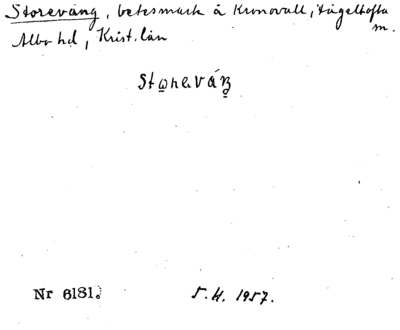 Storeväng, betesmark å Kronovall, Fågeltofta
Albo hd, Krist. län
Nr 6181.
5.4. 1957.